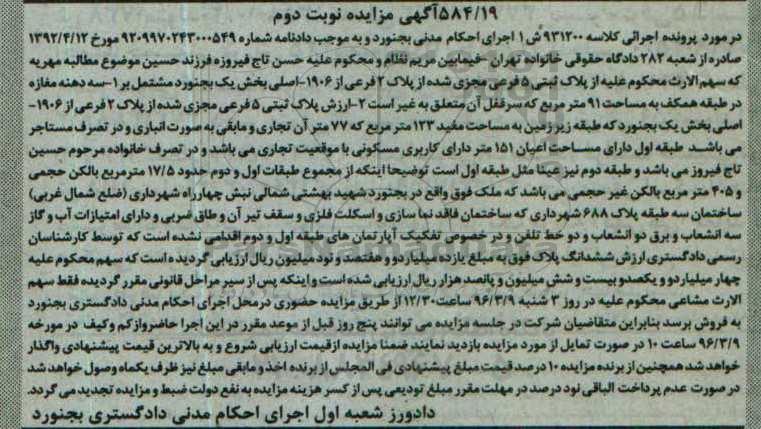 ۵۸۴/۱۹آگهی مزایده نوبت دوم
در مورد پرونده اجرائی کلاسه ۹۳۱۲۰۰ ش ۱ اجرای احکام مدنی بجنورد و به موجب دادنامه شماره ۹۲۰۹۹۷۰۲۴۳۰۰۰۵۴۹ مورخ ۱۳۹۲/۴/۱۲
صادره از شعبه ۲۸۲ دادگاه حقوقی خانواده تهران -فیمابین مریم نظام و محکوم علیه حسن تاج فیروزه فرزند حسین موضوع مطالبه مهریه
که سهم الارث محکوم علیه از پلاک ثبتی ۵ فرعی مجزی شده از پلاک ۲ فرعی از ۱۹۰۶-اصلی بخش یک بجنورد مشتمل بر ۱-سه دهنه مغازه
در طبقه همکف به مساحت ۹۱ متر مربع که سرقفل آن متعلق به غیر است ۲-ارزش پلاک ثبتی ۵ فرعی مجزی شده از پلاک ۲ فرعی از ۱۹۰۶-
اصلی بخش یک بجنورد که طبقه زیرزمین به مساحت مفید ۱۲۳ متر مربع که ۷۷ متر آن تجاری و مابقی به صورت انباری و در تصرف مستاجر
می باشد طبقه اول دارای مساحت اعیان ۱۵۱ متر دارای کاربری مسکونی با موقعیت تجاری می باشد و در تصرف خانواده مرحوم حسین
تاج فیروز می باشد و طبقه دوم نیز عینا مثل طبقه اول است توضیحا اینکه از مجموع طبقات اول و دوم حدود ۱۷/۵ مترمربع بالکن حجمی
و ۴۰۵ متر مربع بالکن غیر حجمی می باشد که ملک فوق واقع در بجنورد شهید بهشتی شمالی نبش چهارراه شهرداری (ضلع شمال غربی)
ساختمان سه طبقه پلاک ۶۸۸ شهرداری که ساختمان فاقد نما سازی و اسکلت فلزی و سقف تیر آن و طاق ضربی و دارای امتیازات آب و گاز
سه انشعاب و برق دو انشعاب و دو خط تلفن و در خصوص تفکیک آپارتمان های طبقه اول و دوم اقدامی نشده است که توسط کارشناسان
رسمی دادگستری ارزش ششدانگ پلاک فوق به مبلغ یازده میلیارد و هفتصد و نود میلیون ریال ارزیابی گردیده است که سهم محکوم علیه
چهار میلیارد و یکصدو بیست و شش میلیون و پانصد هزار ریال ارزیابی شده است و اینکه پس از سیر مراحل قانونی مقرر گردیده فقط سهم
الارث مشاعی محکوم علیه در روز ۳ شنبه ۹۶/۳/۹ ساعت ۱۲/۳۰ از طریق مزایده حضوری در محل اجرای احکام مدنی دادگستری بجنورد
به فروش برسد بنابراین متقاضیان شرکت در جلسه مزایده می توانند پنج روز قبل از موعد مقرر در این اجرا حاضر و از کم و کیف در مورخه
۹۶/۳/۹ ساعت ۱۰ در صورت تمایل از مورد مزایده بازدید نمایند ضمنا مزایده از قیمت ارزیابی شروع و به بالاترین قیمت پیشنهادی واگذار
خواهد شد همچنین از برنده مزایده ۱۰ درصد قیمت مبلغ پیشنهادی فی المجلس از برنده اخذ و مابقی مبلغ نیز ظرف یکماه وصول خواهد شد
در صورت عدم پرداخت الباقی نود درصد در مهلت مقرر مبلغ تودیعی پس از کسر هزینه مزایده به نفع دولت ضبط و مزایده تجدید می گردد.
دادورز شعبه اول اجرای احکام مدنی دادگستری بجنورد